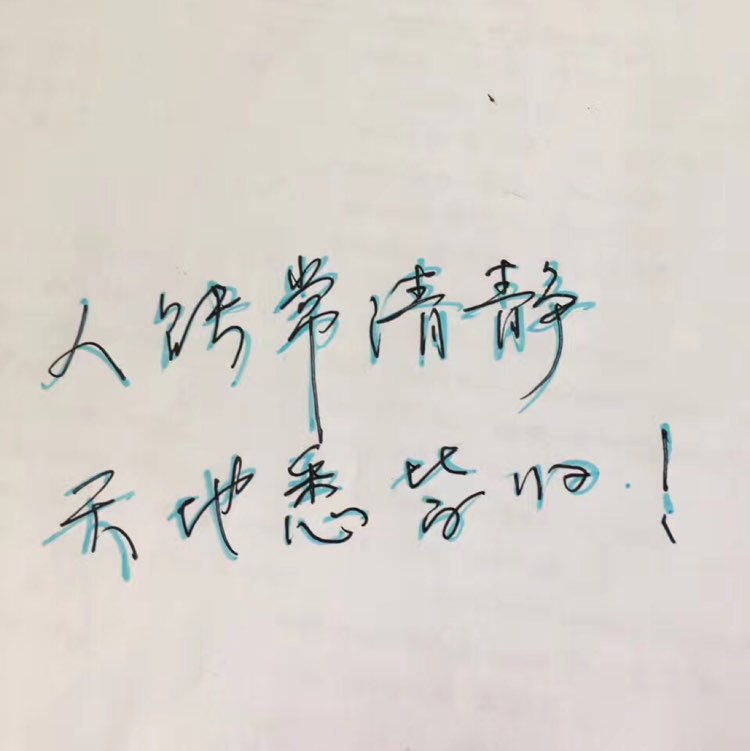 人能常清静
天地悉皆归!